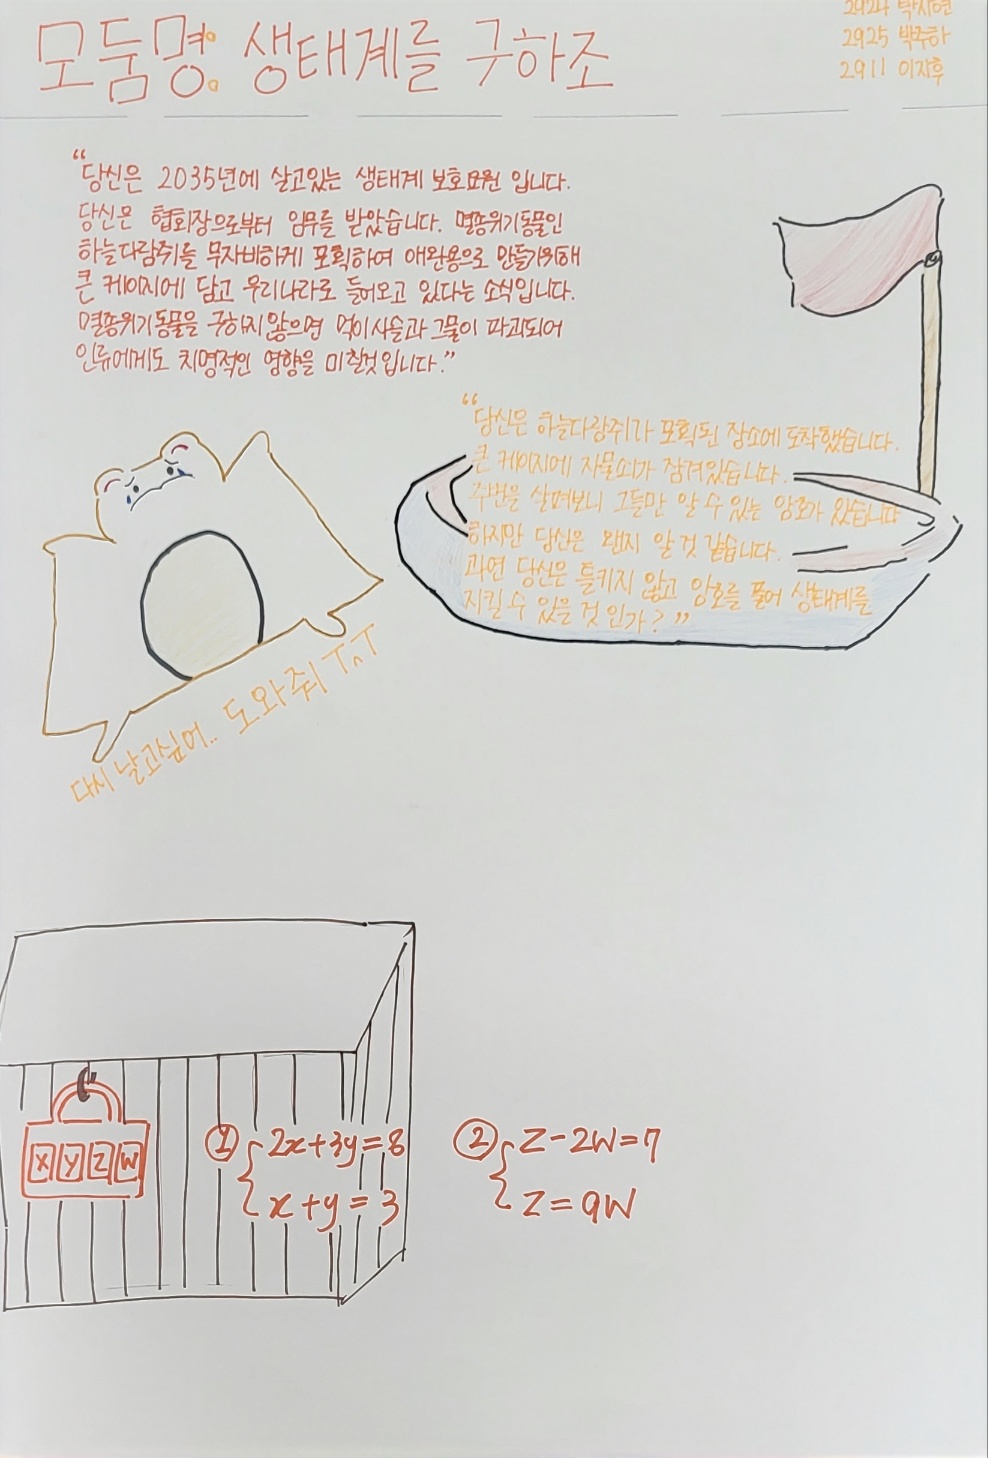 모둠명: 생태계를 구하조
2924 박시현
2925 박주하
2911 이지후
“당신은 2035년에 살고있는 생태계 보호요원 입니다.
당신은 협회장으로부터 임무를 받았습니다. 멸종위기동물인
하늘다람쥐를 무자비하게 포획하여 애완용으로 만들기위해
큰 케이지에 담고 우리나라로 들어오고 있다는 소식입니다.
멸종위기동물을 구하지 않으면 먹이사슬과 그물이 파괴되어
인류에게도 치명적인 영향을 미칠것입니다.”
“당신은 하늘다람쥐가 포획된 장소에 도착했습니다.
큰 케이지에 자물쇠가 잠겨있습니다.
주변을 살펴보니 그들만 알 수 있는 암호가 있습니다
하지만 당신은 왠지 알 것 같습니다.
과연 당신은 들키지 않고 암호를 풀어 생태계를
지킬 수 있을 것 인가?”
다시 날고싶어.. 도와줘 T^T
X Y Z W
① 2x+3y=8
x+y=3
② Z-2W=7
Z=9W